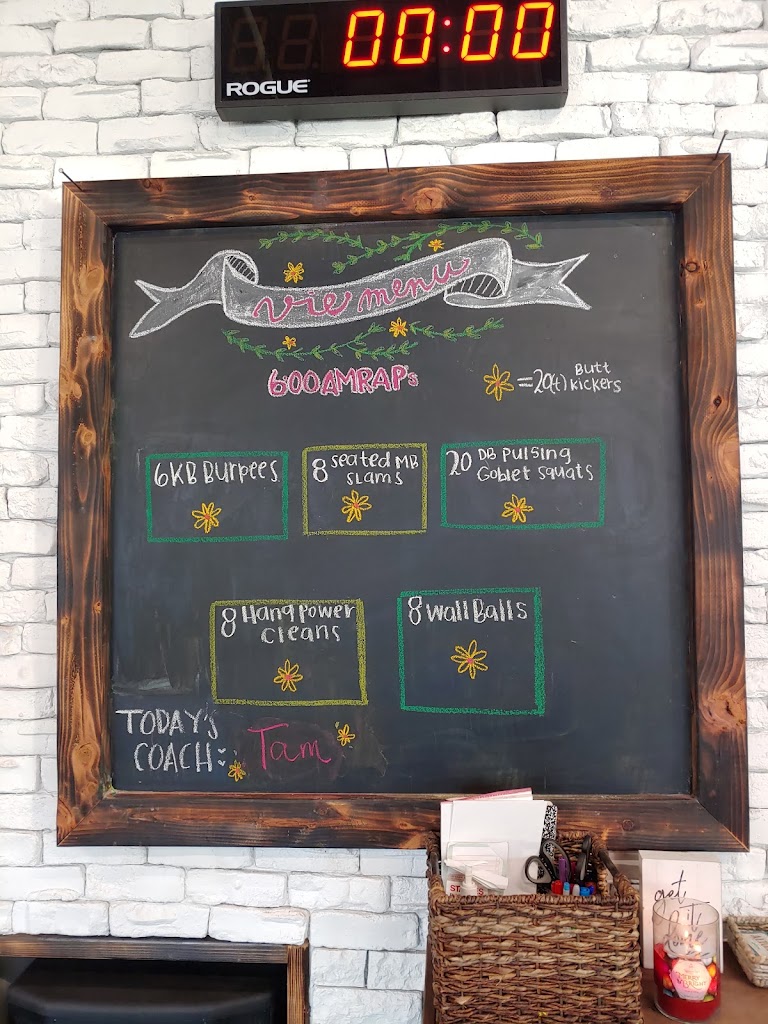 00:00
ROGUE
vie menu
600 AMRAP's
= 20(t) Butt
Kickers
6 KB Burpees
8 seated MB
slams
20 DB Pulsing
Goblet squats
8 Hang Power
cleans
8 Wall Balls
TODAY'S
COACH:
Tam
get